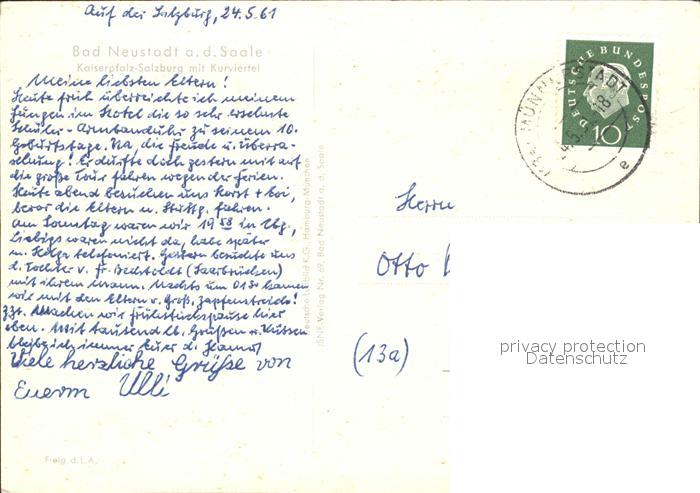 Auf der Salzburg, 24.5.61
Bad Neustadt a. d. Saale
Kaiserpfalz-Salzburg mit Kurviertel
Meine liebsten Eltern!
Heute früh überreichte ich meinem
Jungen im Hotel die so sehr ersehnte
Schüler-Armbanduhr zu seinem 10.
Geburtstage. Na, die Freude u. Überra-
schung! Er durfte doch gestern mit auf
die große Tour fahren wegen der Ferien.
Heute abend besuchen uns Horst +
bevor die Eltern n. Stuttg. fahren.
Am Sonntag waren wir 19 in
waren nicht da, habe später
m. Helga telefoniert. Gestern besuchte uns
d. Tochter v. Fr. (Saarbrücken)
mit ihrem Mann. Nachts um kamen
wir mit den Eltern v. Groß. Zapfenstreich!
Zzt. machen wir Frühstückspause hier
oben. Mit tausend lb. Grüßen u. Küssen
bleib ich immer Euer
Viele herzliche Grüße von
Euerm Ulli
Fielg d. L. A.
ISNF-Verlag Nr. 69, Bad Neustadt a. d. Saale
K.G., Hamburg-München
DEUTSCHE BUNDESPOST
10
18
a
Herrn
Otto
(13a)
privacy protection
Datenschutz